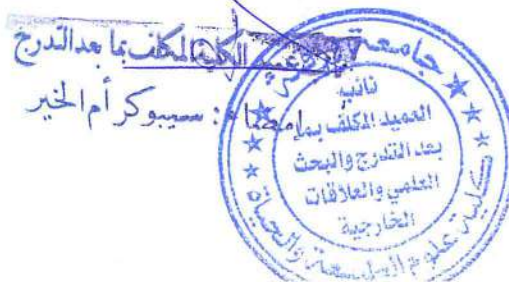 عميد الكلية المكلف بما بعد التدرج
إمضاء: سيبوكر أم الخير
جامعة
نائب
العميد المكلف بما
بعد التدرج والبحث
العلمي والعلاقات
الخارجية
كلية علوم الطبيعة والحياة